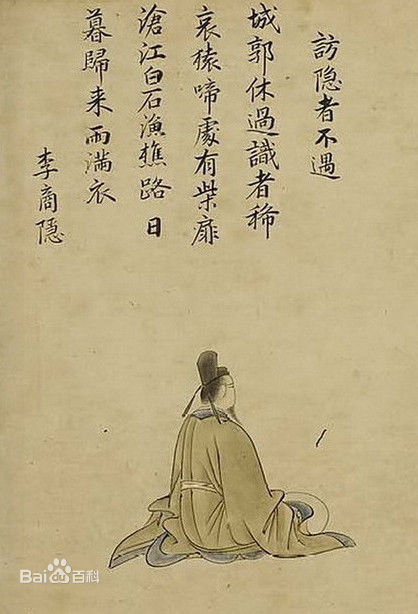 訪隐者不遇
城郭休過識者稀
哀猿啼處有柴扉
滄江白石漁樵路日
暮歸来雨滿衣
李商隱
Bai百科